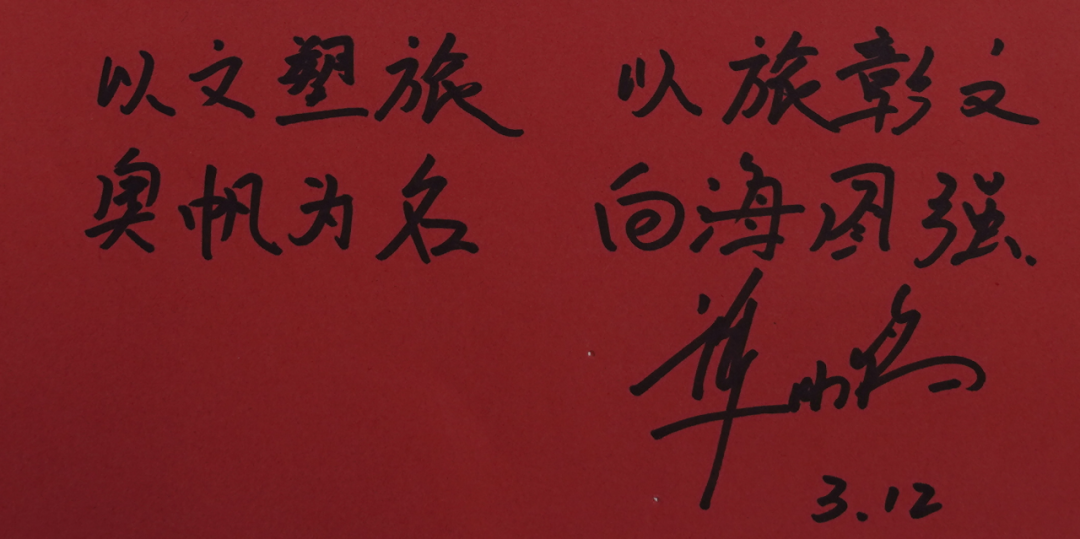 以文塑旅 以旅彰文
奥帆为名 向海图强
3.12